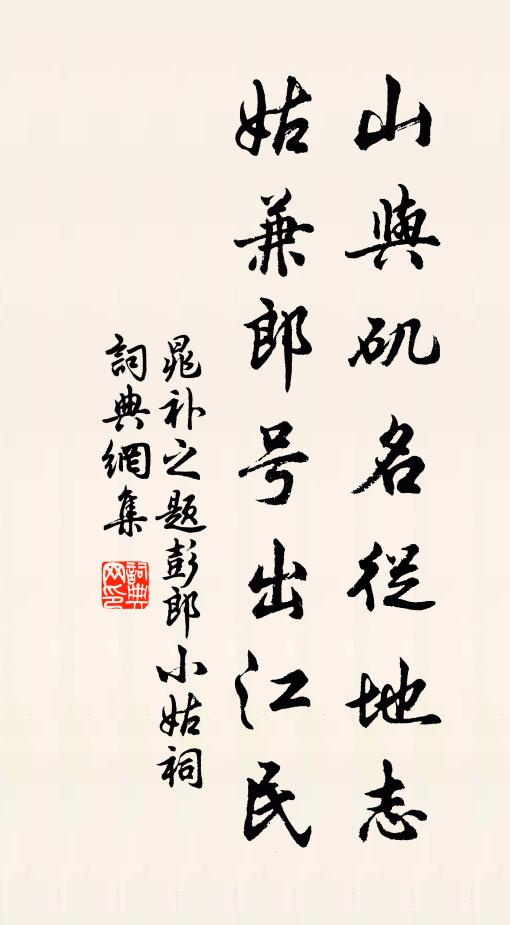 山與矶名從地志
姑兼郎号出江民
晁补之题彭郎小姑祠
詞典網集
詞典网印